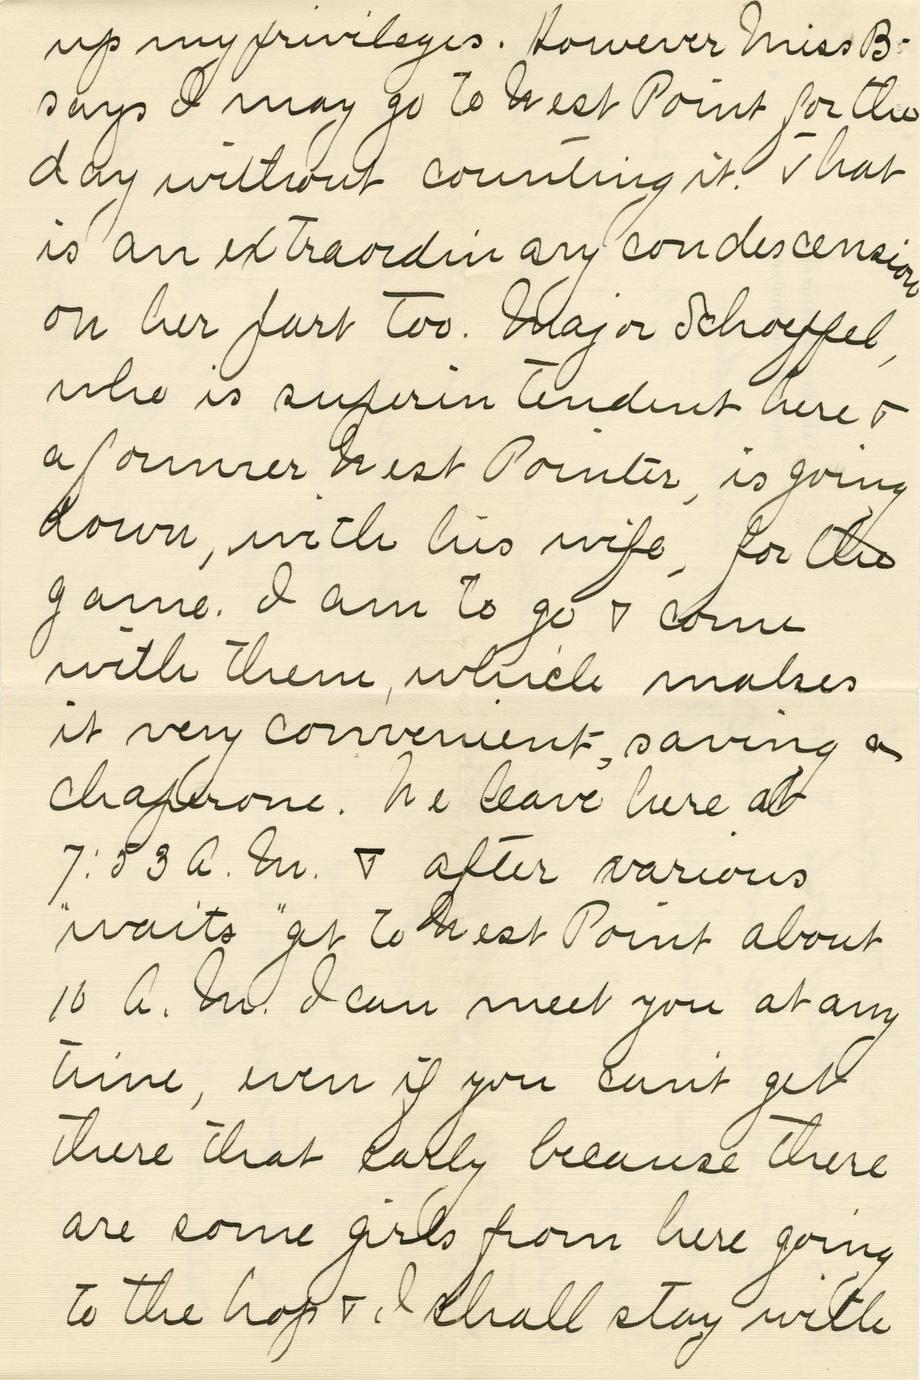 up my privileges. However Miss B-
says I may go to West Point for the
day without counting it. That
is an extraordinary condescension
on her part too. Major Schoeffel,
who is superintendent here &
a former West Pointer, is going
down, with his wife, for the
game. I am to go & come
with them, which makes
it very convenient, saving a
chaperone. We leave here at
7:53 A.M. & after various
"waits" get to West Point about
10 A.M. I can meet you at any
time, even if you can't get
there that early because there
are some girls from here going
to the hop & I shall stay with